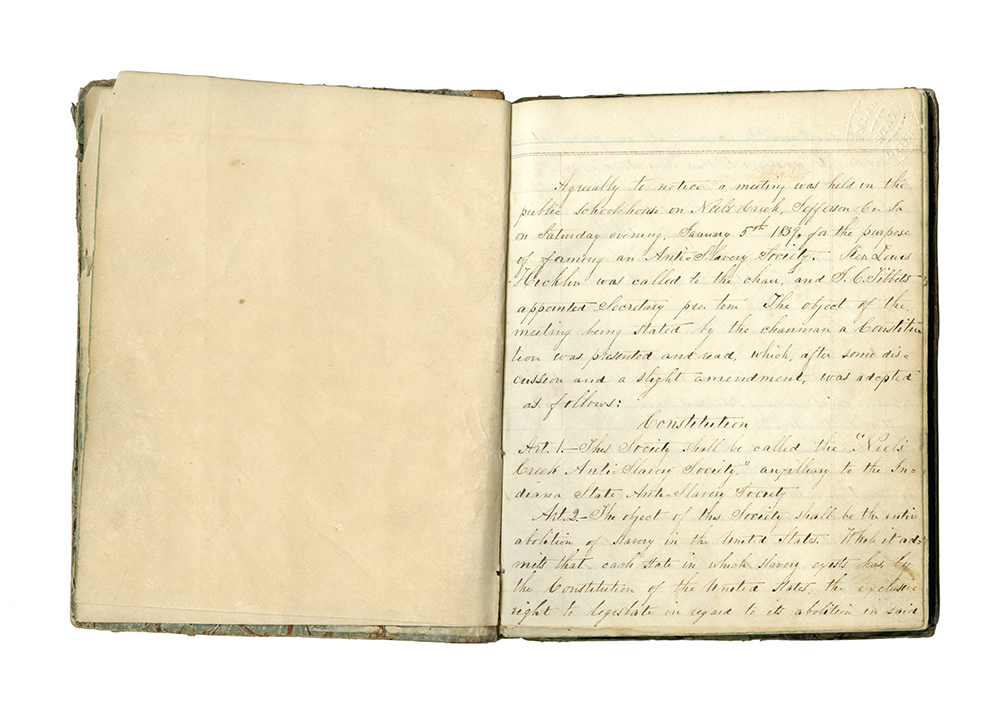 Agreeally to notice a meeting was held in the
public school-house on Neels Creek, Jefferson Co. Ia
on Saturday evening, January 5th 1839, for the purpose
of forming an Anti-Slavery Society. Rev. Lewis
Hicklin was called to the chair, and J. C. Tibbets
appointed Secretary pro. tem. The object of the
meeting being stated by the chairman a Constitu
tion was presented and read, which, after some dis-
cussion and a slight amendment, was adopted
as follows:
Constitution
Art. 1.—This Society shall be called the "Neel's
Creek Anti-Slavery Society." auxiliary to the In-
diana State Anti-Slavery Society
Art. 2.—The object of this Society shall be the entire
abolition of slavery in the United States. While it ad-
mits that each state in which slavery exists has by
the Constitution of the United States, the exclusive
right to legislate in regard to its abolition in said